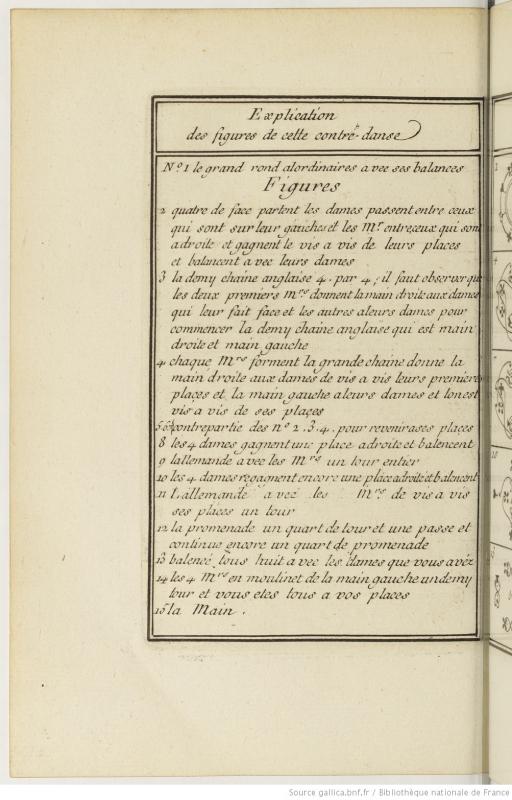 Explication
des figures de cette contre-danse
N.º 1 le grand rond alordinaires avec ses balances
Figures
2 quatre de face partent les dames passent entre ceux
qui sont sur leur gauches et les M.rs entre, ceux qui sont
adroite et gagnent le vis a vis de leurs places
et balancent avec leurs dames
3 la demy chaine anglaise 4. par 4, il faut observer que
les deux premiers M.rs donnent la main droite aux dames
qui leur fait face et les autres aleurs dames pour
commencer la demy chaine anglaise qui est main
droite et main gauche
4 chaque M.rs forment la grande chaine donne la
main droite aux dames de vis a vis leurs premieres
places et la main gauche aleurs dames et lonest
vis a vis de ses places
5.6.7 contrepartie des nº 2.3.4. pour revenir ases places
8 les 4 dames gagnent une place adroite et balencent
9 lallemande avec les M.rs un tour entier
10 les 4 dames regagnent encore une place adroite et balencent
11 L'allemande avec les M.rs de vis a vis
ses places un tour
12 la promenade un quart de tour et une passe et
continue encore un quart de promenade
13 balencé tous huit avec les dames que vous avéz
14 les 4 M.rs en moulinet de la main gauche un demy
tour et vous etes tous a vos places
15 la Main.
Source gallica.bnf.fr / Bibliothèque nationale de France